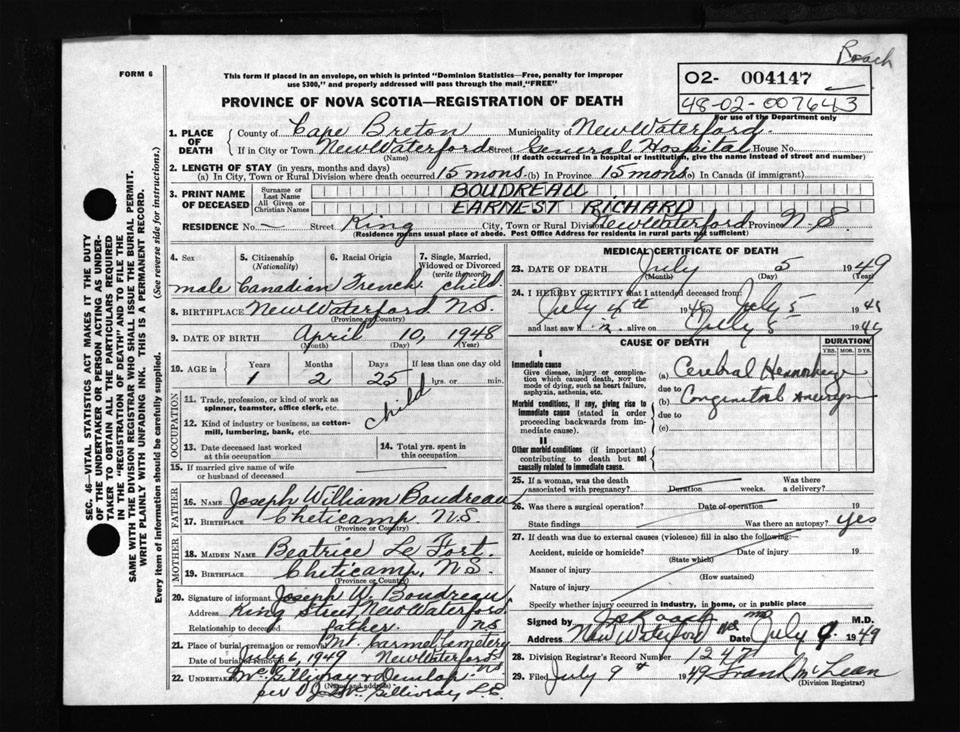 Roach
FORM 6
This form if placed in an envelope, on which is printed "Dominion Statistics—Free, penalty for improper
use $300," and properly addressed will pass through the mail, "FREE"
O2- 004147
48-02-007643
For use of the Department only
PROVINCE OF NOVA SCOTIA—REGISTRATION OF DEATH
1. PLACE OF DEATH County of Cape Breton Municipality of New Waterford
If in City or Town New Waterford Street General Hospital House No.
(Name) (If death occurred in a hospital or institution, give the name instead of street and number)
2. LENGTH OF STAY (in years, months and days)
(a) In City, Town or Rural Division where death occurred 15 mons. (b) In Province 15 mons (c) In Canada (if immigrant)
3. PRINT NAME OF DECEASED Surname or Last Name BOUDREAU
All Given or Christian Names EARNEST RICHARD
RESIDENCE No. — Street King City, Town or Rural Division New Waterford Province N.S
(Residence means usual place of abode. Post Office Address for residents in rural parts not sufficient)
4. Sex male 5. Citizenship (Nationality) Canadian 6. Racial Origin French 7. Single, Married, Widowed or Divorced (write the word) child
8. BIRTHPLACE New Waterford N.S.
(Province or Country)
9. DATE OF BIRTH April 10, 1948
(Month) (Day) (Year)
10. AGE in Years 1 Months 2 Days 25 If less than one day old hrs. or min.
OCCUPATION
11. Trade, profession, or kind of work as spinner, teamster, office clerk, etc. child
12. Kind of industry or business, as cotton-mill, lumbering, bank, etc.
13. Date deceased last worked at this occupation 14. Total yrs. spent in this occupation
15. If married give name of wife or husband of deceased
FATHER
16. NAME Joseph William Boudreau
17. BIRTHPLACE Cheticamp N.S.
(Province or Country)
MOTHER
18. MAIDEN NAME Beatrice Le Fort.
19. BIRTHPLACE Cheticamp, N.S.
(Province or Country)
20. Signature of informant Joseph W. Boudreau
Address King Street New Waterford
Relationship to deceased father. NS
21. Place of burial, cremation or removal Mt. Carmel Cemetery
Date of burial or removal July 6, 1949 New Waterford
22. UNDERTAKER McGillivray & Dunlop
(Name and address)
per D J McGillivray L.E.
MEDICAL CERTIFICATE OF DEATH
23. DATE OF DEATH July 5 1949
(Month) (Day) (Year)
24. I HEREBY CERTIFY that I attended deceased from:
July 4th July 5
and last saw h alive on July 5
CAUSE OF DEATH DURATION
YRS. MOS. DYS.
I
Immediate cause
Give disease, injury or complication which caused death, not the mode of dying, such as heart failure, asphyxia, asthenia, etc.
(a) Cerebral Hemorrhage
due to
Morbid conditions, if any, giving rise to immediate cause (stated in order proceeding backwards from immediate cause).
(b) Congenital Aneurysm
due to
(c)
II
Other morbid conditions (if important) contributing to death but not causally related to immediate cause.
25. If a woman, was the death associated with pregnancy? Duration weeks. Was there a delivery?
26. Was there a surgical operation? Date of operation 19
State findings Was there an autopsy? Yes
27. If death was due to external causes (violence) fill in also the following:—
Accident, suicide or homicide? Date of injury 19
(State which)
Manner of injury
(How sustained)
Nature of injury
Specify whether injury occurred in industry, in home, or in public place
Signed by Roach MD M.D.
Address New Waterford NS Date July 9 1949
28. Division Registrar's Record Number 1247
29. Filed July 9th 1949 Frank McLean
(Division Registrar)
SEC. 46—VITAL STATISTICS ACT MAKES IT THE DUTY
OF THE UNDERTAKER OR PERSON ACTING AS UNDER-
TAKER TO OBTAIN ALL THE PARTICULARS REQUIRED
IN THE "REGISTRATION OF DEATH" AND TO FILE THE
SAME WITH THE DIVISION REGISTRAR WHO SHALL ISSUE THE BURIAL PERMIT.
WRITE PLAINLY WITH UNFADING INK. THIS IS A PERMANENT RECORD.
Every item of information should be carefully supplied. (See reverse side for instructions.)